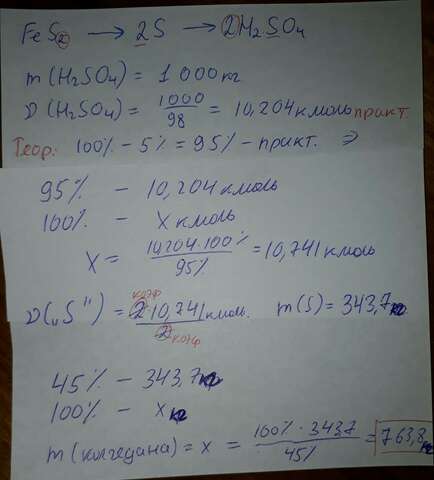 FeS2 → 2S → 2H2SO4
m(H2SO4) = 1000кг
ν(H2SO4) = 1000/98 = 10,204 кмоль практ.
Теор: 100% - 5% = 95% - практ. ⇒
95% - 10,204 кмоль
100% - x кмоль
x = 10,204·100%/95% = 10,741 кмоль
коэф
ν("S") = 2·10,741 кмоль/2 m(S) = 343,7 кг
коэф
45% - 343,7 кг
100% - x кг
m(колчедана) = x = 100%·343,7/45% = 763,8 кг